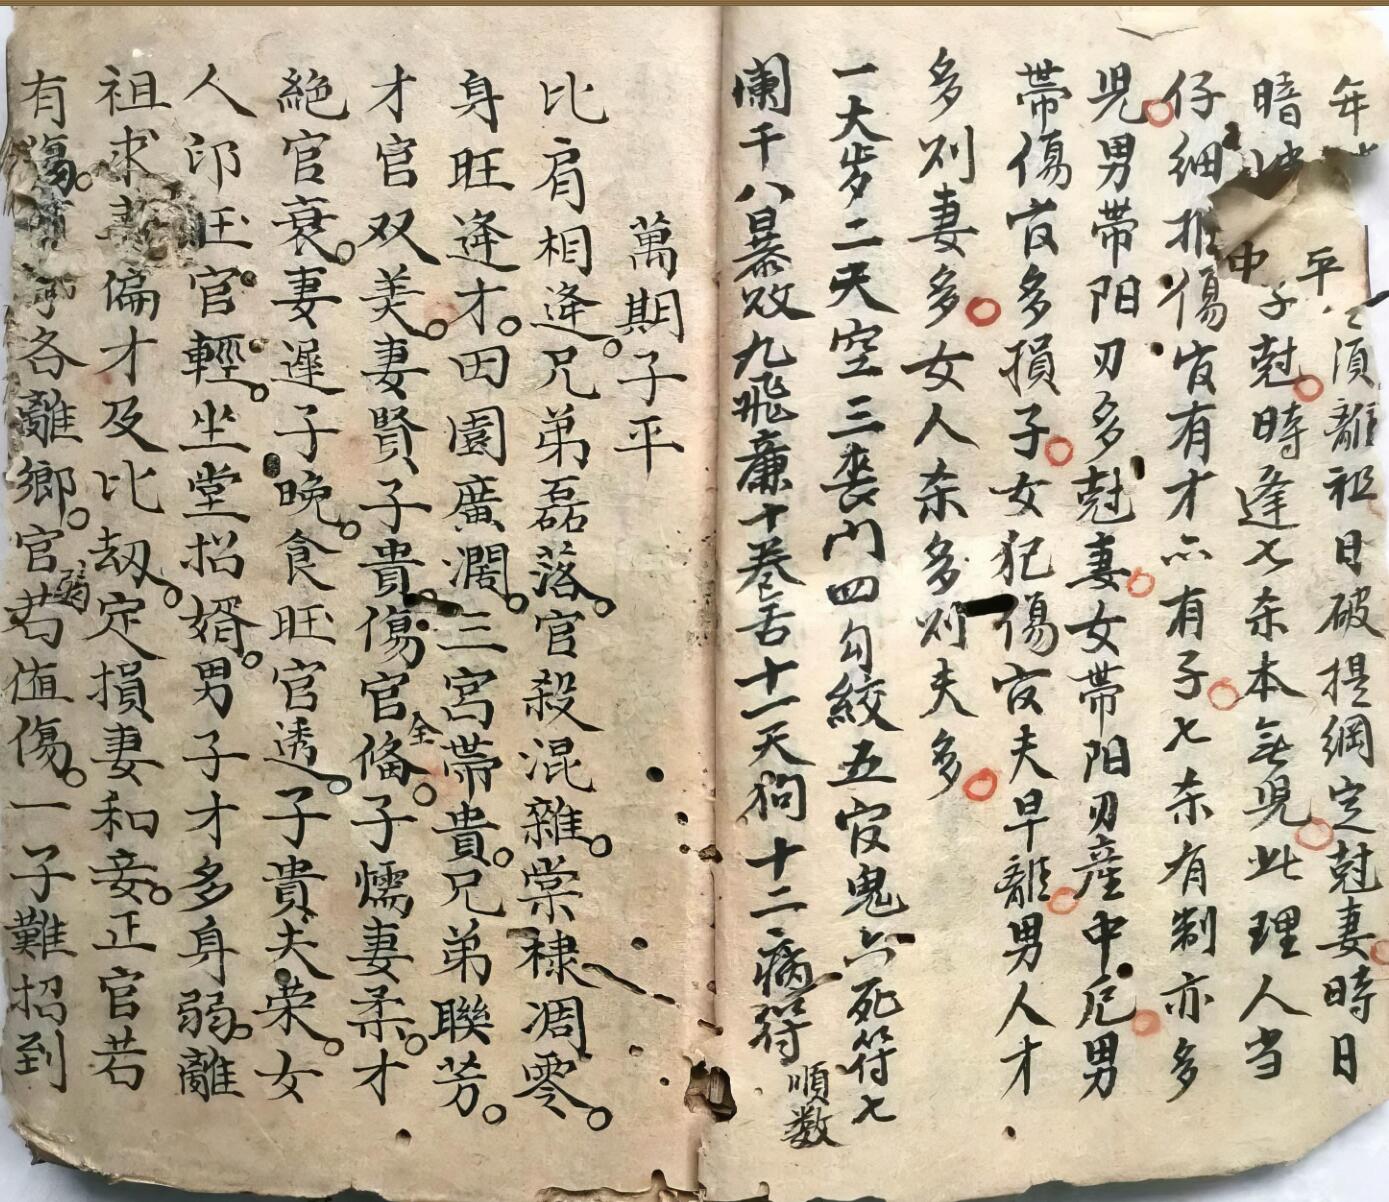 年 平 須離祖日破提綱定尅妻時日
暗 中子尅時逢七杀本无児此理人当
仔細推傷官有才亦有子七杀有制亦多
児男帶阳刃多尅妻女帶阳刃産中厄男
帶傷官多損子女犯傷官夫早離男人才
多则妻多多女人杀多则夫多
一大步二天空三丧门四勾絞五官鬼六死符七
闌干八暴败九飛亷十卷舌十一天狗十二病符順数
萬期子平
比肩相逄兄弟磊落官殺混雜棠棣凋零
身旺逄才田園廣濶三宮帶貴兄弟聯芳
才官双美妻賢子貴傷官俻全子懦妻柔才
絕官衰妻遲子晚食旺官透子貴夫荣女
人印旺官輕坐堂招婿男子才多身弱離
祖求 偏才及比刼定損妻和妾正官若
有傷 各離鄉官若弱值傷一子難招到